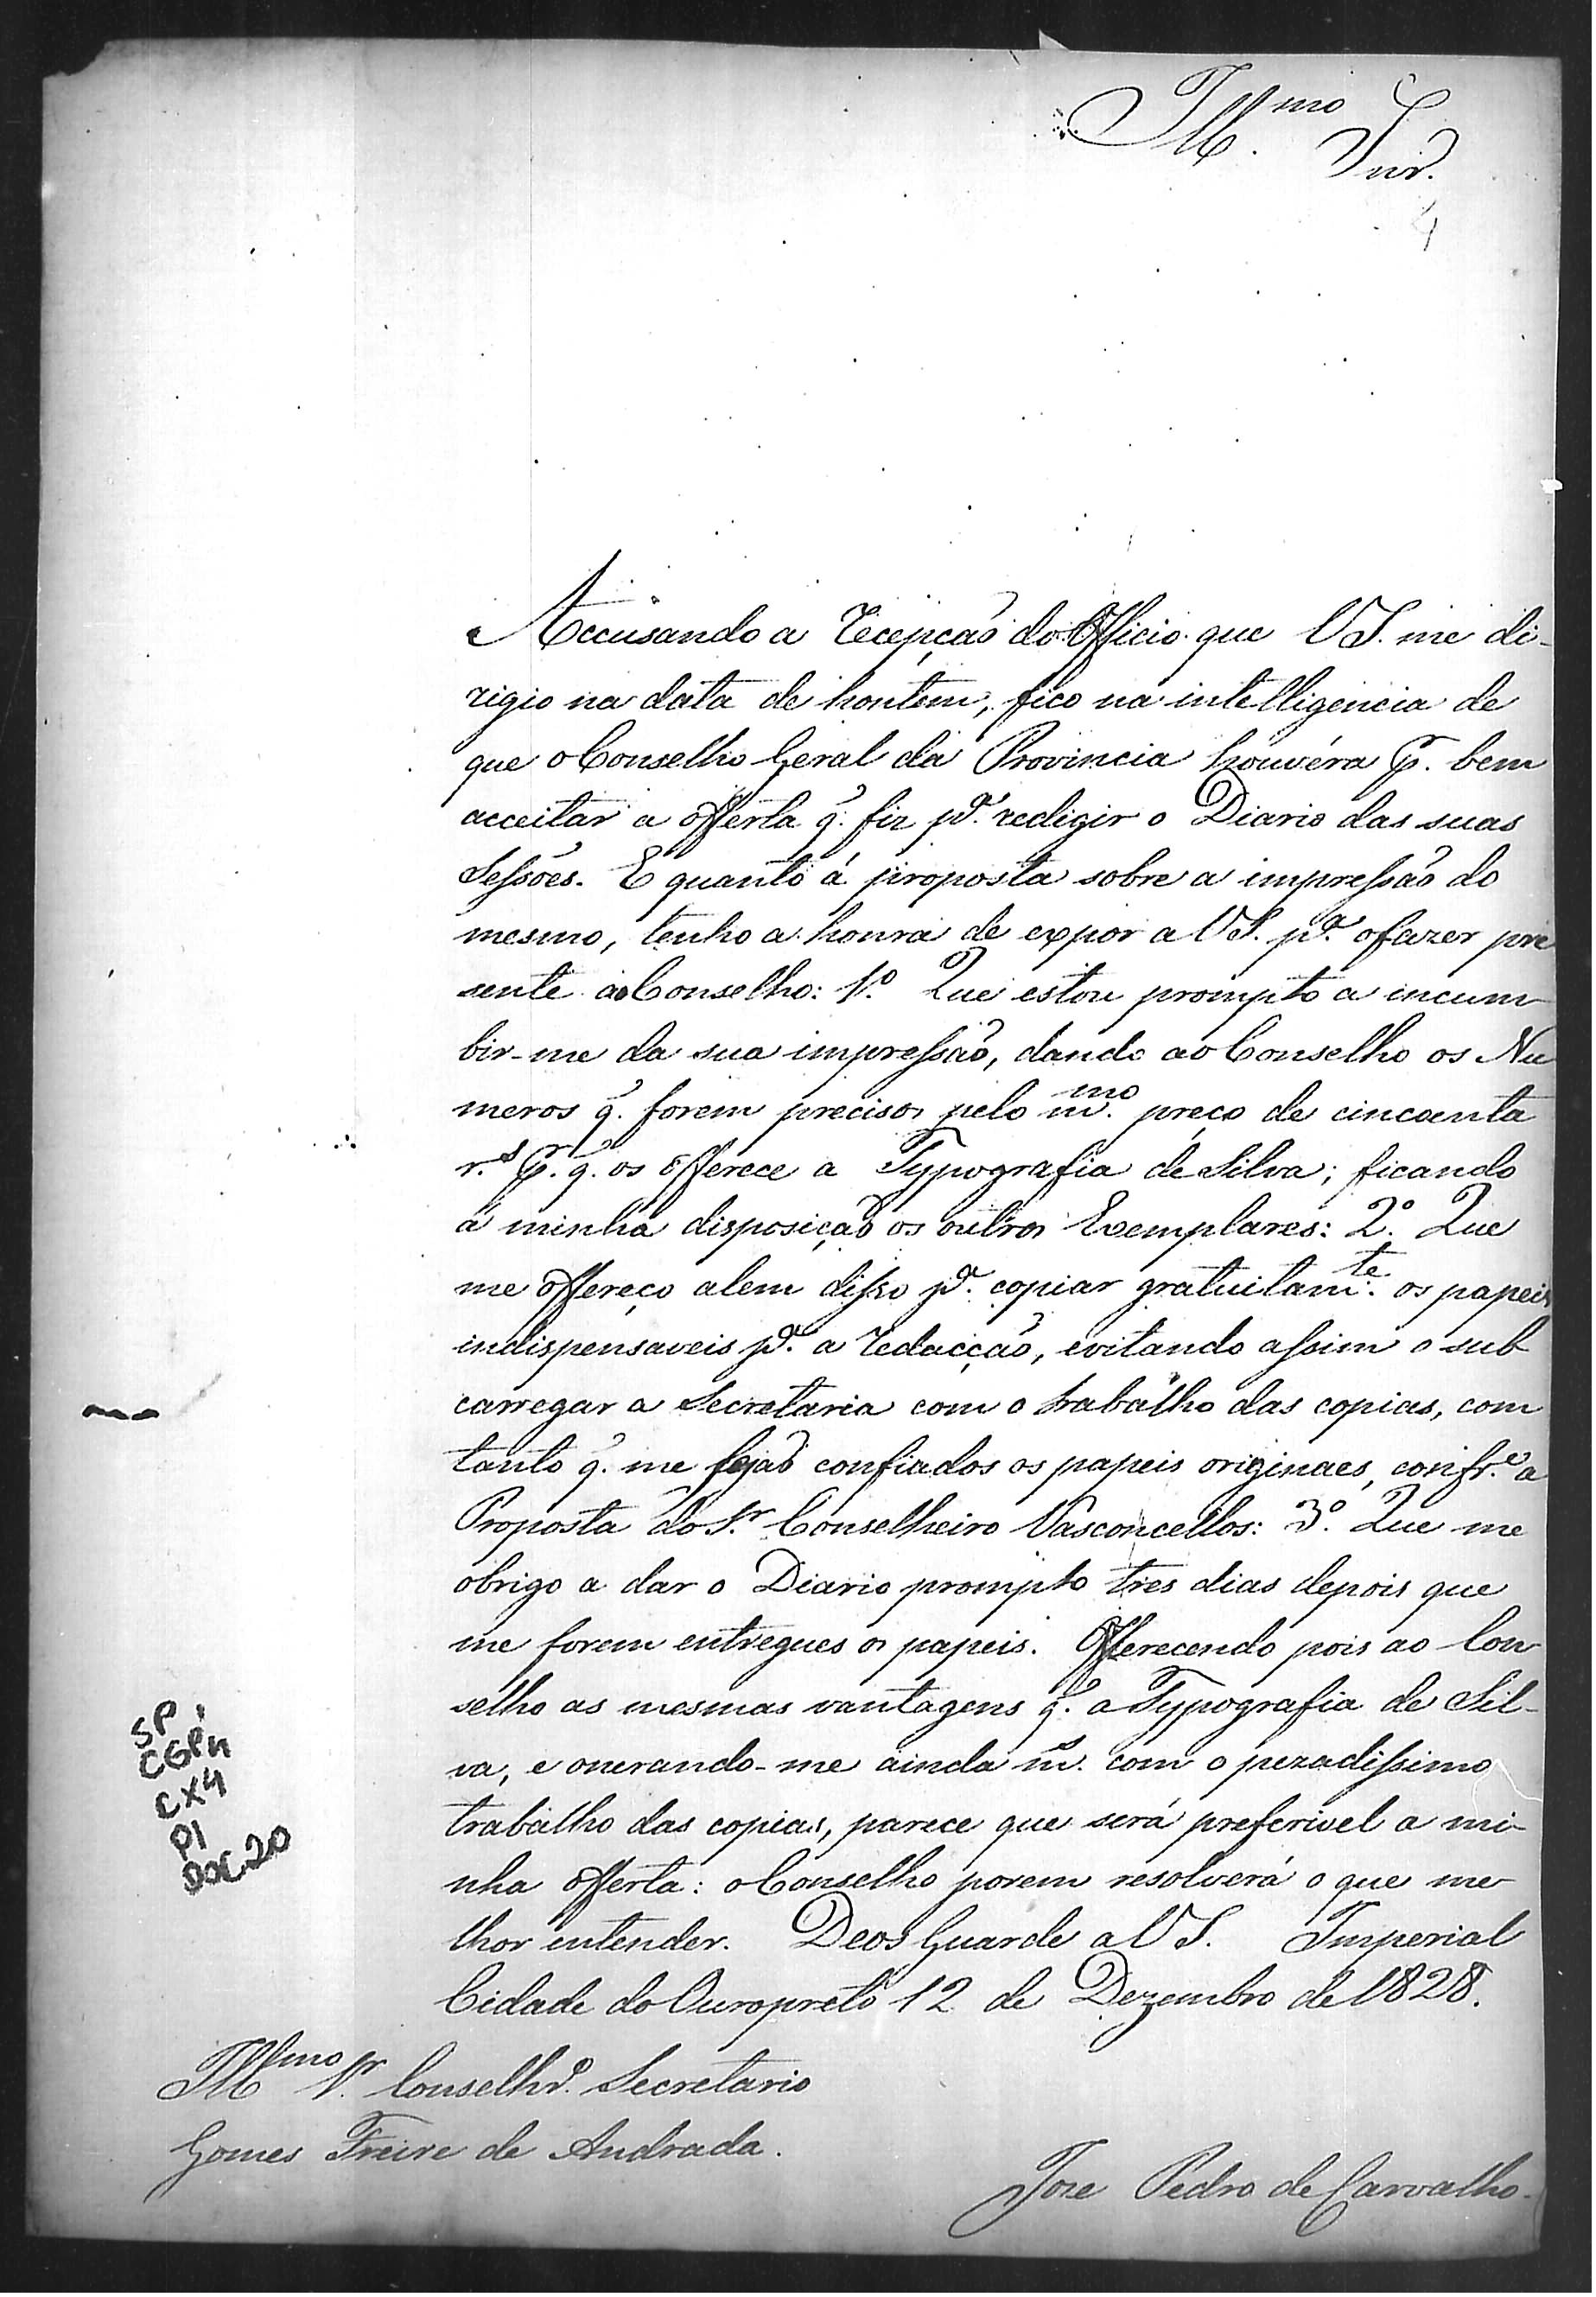 Illmo Snr.
Accusando a recepção do Officio que VS. me di-
rigio na data de hontem, fico na intelligencia de
que o Conselho Geral da Provincia houvéra p. bem
acceitar a offerta q̃. fiz pa. redigir o Diario das suas
Sessões. E quanto á proposta sobre a impressão do
mesmo, tenho a honra de expor a VS. pa. o fazer pre
sente ao Conselho: 1º. Que estou prompto a incum-
bir-me da sua impressão, dando ao Conselho os Nu
meros q̃. forem precisos pelo mmo. preço de cincoenta
r.s p. q̃. os offerece a Typografia de Silva; ficando
á minha disposição os outros Exemplares: 2º. Que
me offereço alem disso pa. copiar gratuitamte. os papeis
indispensaveis pa. a redacção, evitando assim o sub
carregar a Secretaria com o trabalho das copias, com
tanto q̃. me sejão confiados os papeis originaes, confr.e a
Proposta do Sr. Conselheiro Vasconcellos: 3º. Que me
obrigo a dar o Diario prompto tres dias depois que
me forem entregues os papeis. Offerecendo pois ao Con
selho as mesmas vantagens q̃. a Typografia de Sil-
va, e onerando-me ainda ms. com o pezadissimo
trabalho das copias, parece que será preferivel a mi-
nha offerta: o Conselho porem resolverá o que me
lhor entender. Deos Guarde a VS. Imperial
Cidade do Ouropreto 12 de Dezembro de 1828.
Illmo Sr. Conselhro. Secretario
Gomes Freire de Andrada.
Joze Pedro de Carvalho.
SP,
CGP4
CX4
P1
DOC.20